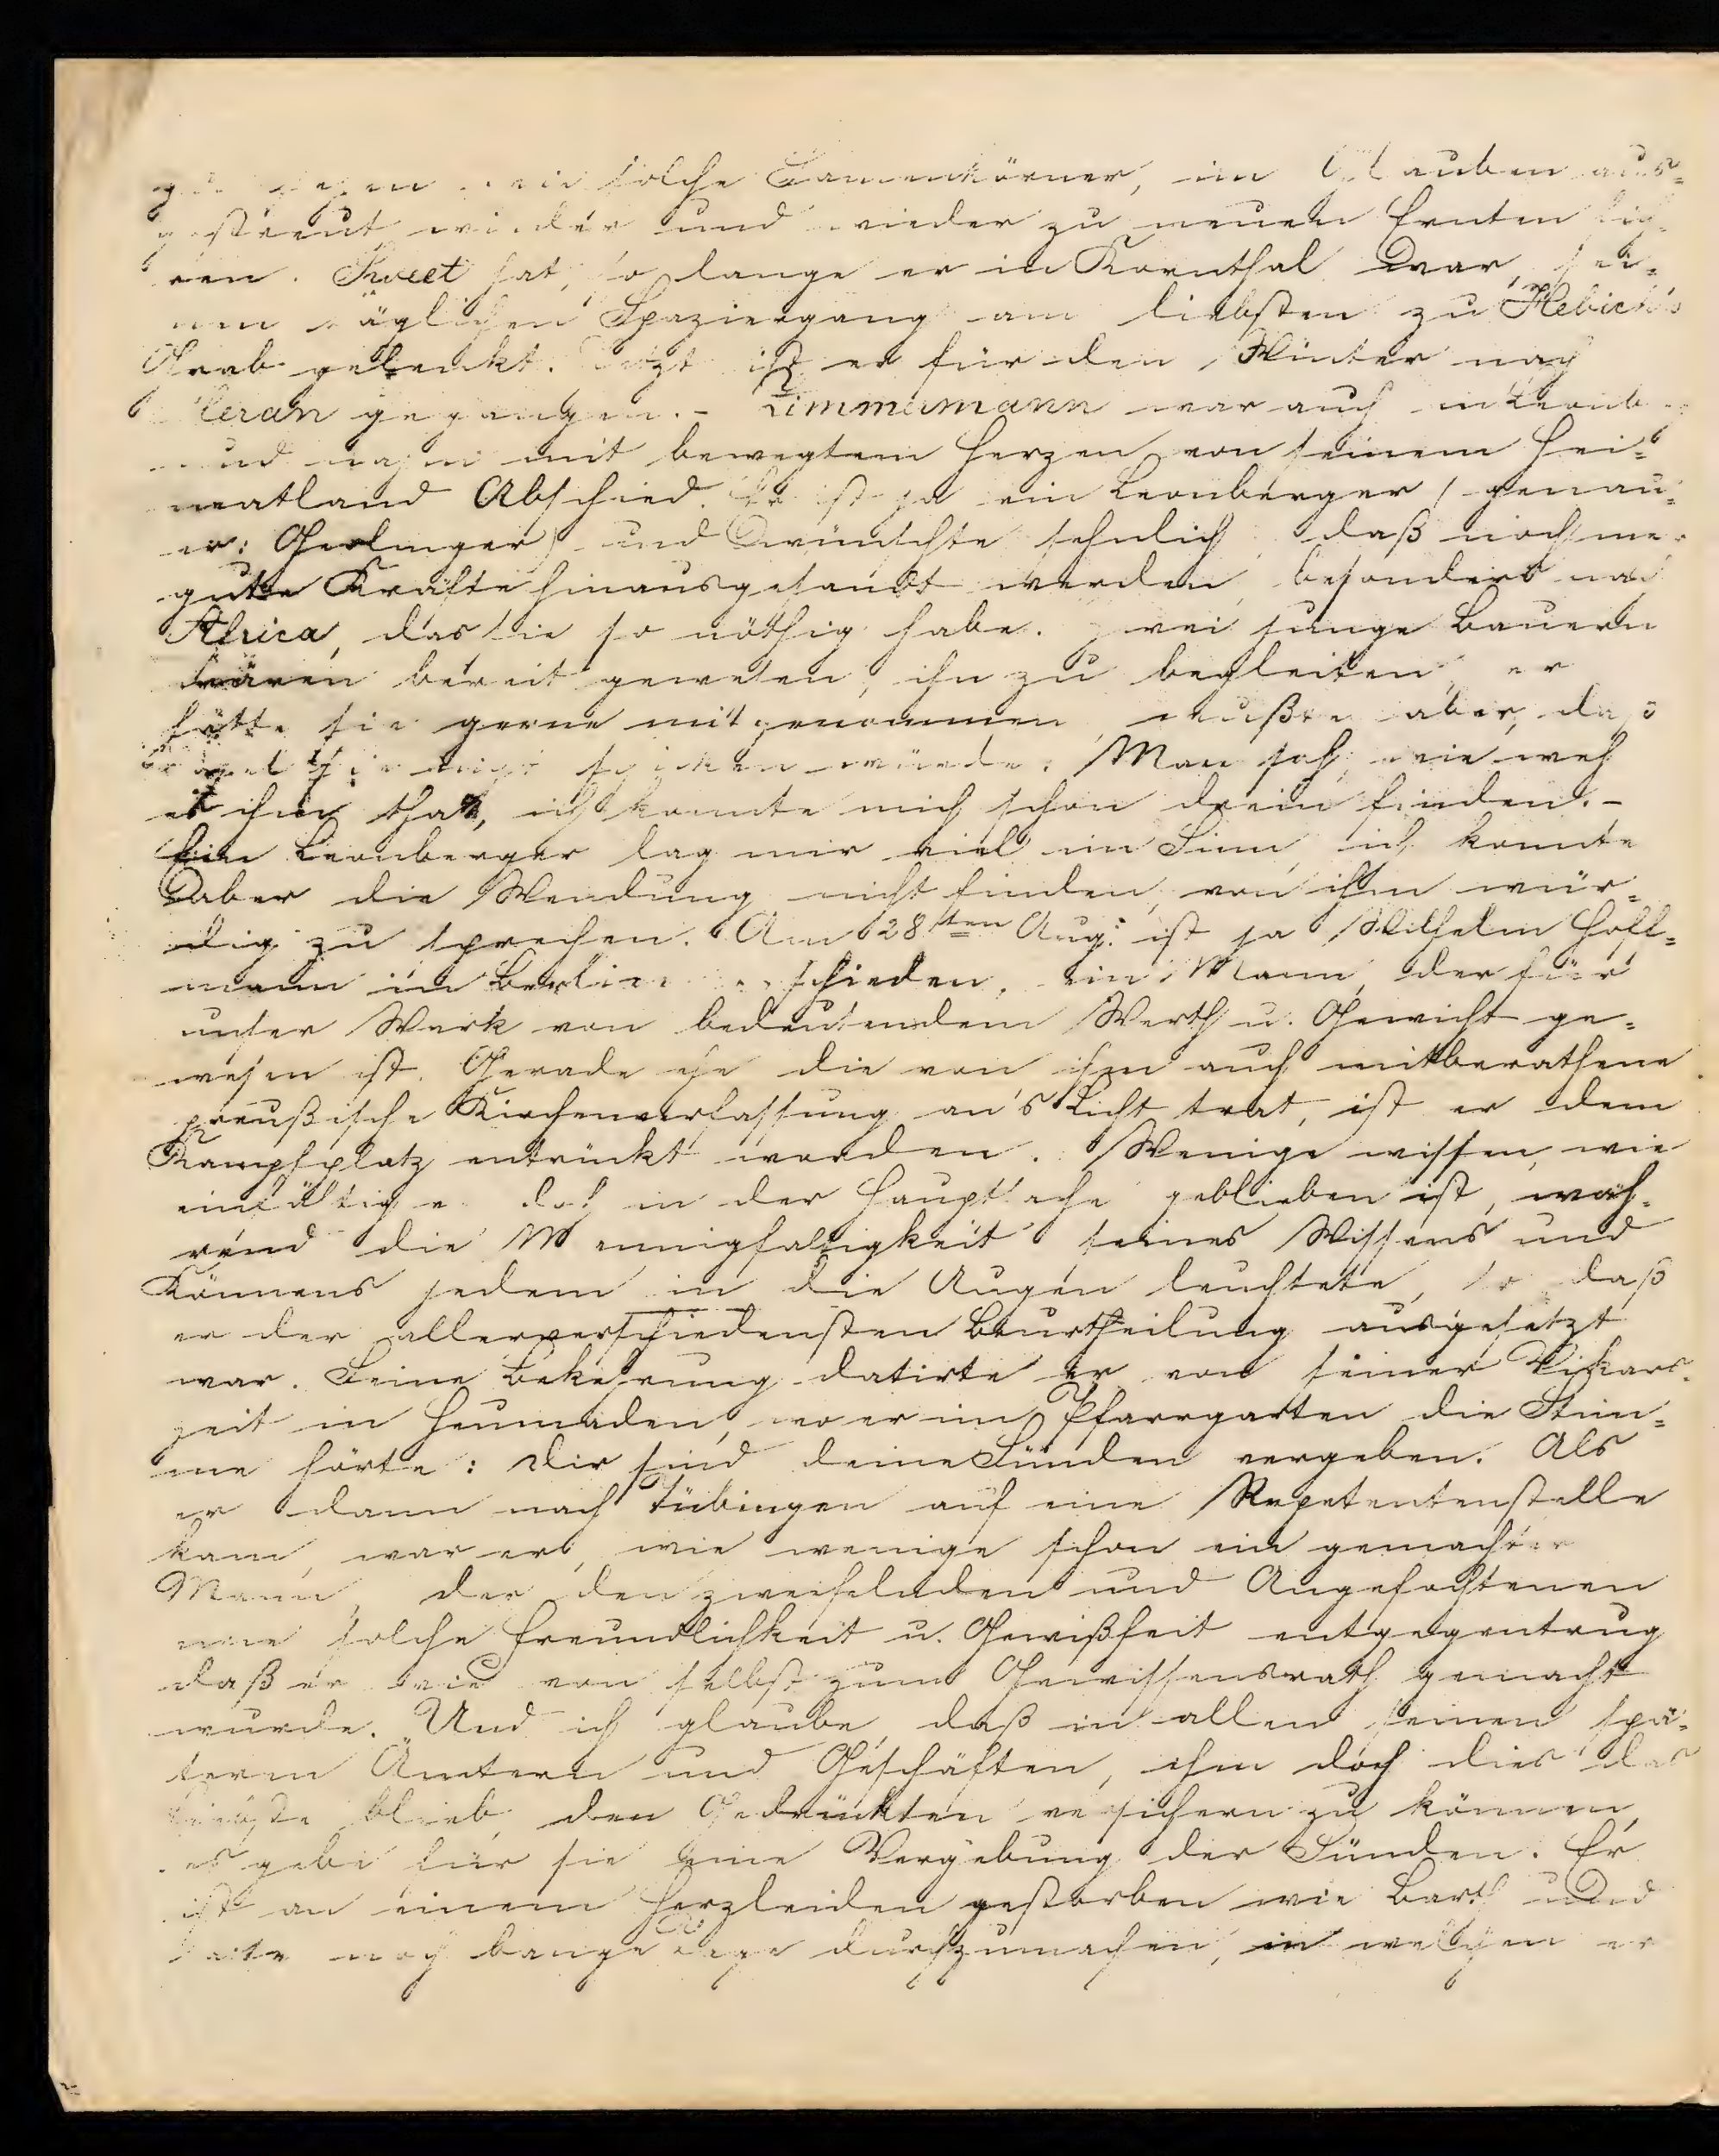 solche Samenkörner, im Glauben aus-
gestreut wieder und wieder zu neuen Ernten
ren. Sweet hat, so lange er in Kornthal war, sei-
nen täglichen Spaziergang am liebsten zu Hebich's
Grab gelenkt. Jetzt ist er für den Winter nach
Meran gegangen. - Zimmermann war auch in Leonb
und nahm mit bewegtem Herzen von seinem Hei-
matland Abschied. Er ist ja ein Leonberger (genau-
er: Gerlinger) und wünschte sehnlich, daß noch mehr
gute Kräfte hinausgesandt werden, besonders nach
Africa, das sie so nöthig habe. Zwei junge Bauern
wären bereit gewesen, ihn zu begleiten, er
hätte sie gerne mitgenommen, wußte aber, daß
Basel sie nicht schicken würde. Man sah, wie weh
es ihm that, ich konnte mich schon drein finden. -
Ein Leonberger lag mir viel im Sinn, ich konnte
aber die Wendung nicht finden, von ihm wür-
dig zu sprechen. Am 28sten Aug. ist ja Wilhelm Hoff-
mann in Berlin verschieden, ein Mann, der für
unser Werk von bedeutendem Werth u. Gewicht ge-
wesen ist. Gerade ehe die von ihm auch mitberathene
preußische Kirchenverfassung an's Licht trat, ist er dem
Kampfplatz entrückt worden. Wenige wissen, wie
einfältig er doch in der Hauptsache geblieben ist, wäh-
rend die Mannigfaltigkeit seines Wissens und
Könnens jedem in die Augen leuchtete, so daß
er der allerverschiedensten Beurtheilung ausgesetzt
war. Seine Bekehrung datirte er von seiner Vikars-
zeit in Heumaden, wo er im Pfarrgarten die Stim-
me hörte: Dir sind deine Sünden vergeben. Als
er dann nach Tübingen auf eine Repetentenstelle
kam, war er, wie wenige schon ein gemachter
Mann, der den zweifelnden und Angefochtenen
eine solche Freundlichkeit u. Gewißheit entgegentrug
daß er wie von selbst zum Gewissensrath gemacht
wurde. Und ich glaube, daß in allen seinen spä-
tern Ämtern und Geschäften, ihm doch dies das
liebste blieb, den Gedrückten versichern zu können,
es gebe für sie eine Vergebung der Sünden. Er
ist an einem Herzleiden gestorben wie Barth und
hatte noch bange Tage durchzumachen, in welchen er